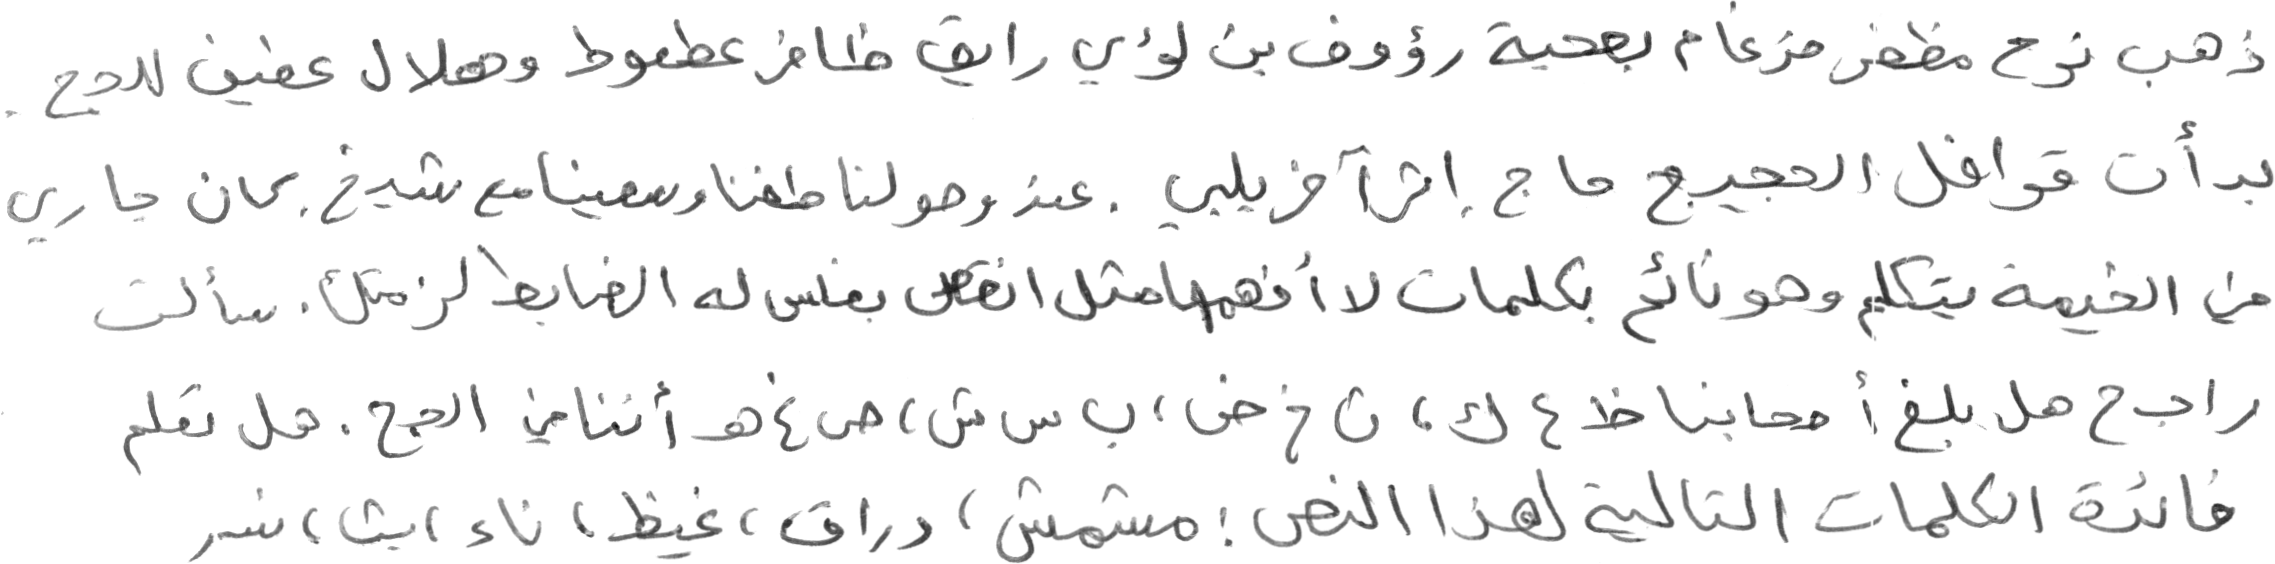 ذهب نوح مظفر ضرغام بصحبة رؤوف بن لؤي رايق ظافر عطعوط وهلال عفيف للحج.
بدأت قوافل الحجيج حاج إثر آخر يلبي. عند وصولنا طفنا وسعينا مع شيخ. كان جاري
من الخيمة يتكلم وهو نائم بكلمات لا أفهمها مثل انفكى بغلس له الضابط لزمتك. سألت
راجح هل بلغ أصحابنا ظ ع ك، ث خ ض، ب س ش، ص غ هـ أننا من الحج. هل تعلم
فائدة الكلمات التالية لهذا النص: مشمش، دراق، غيظ، ناء، ابث، نسر